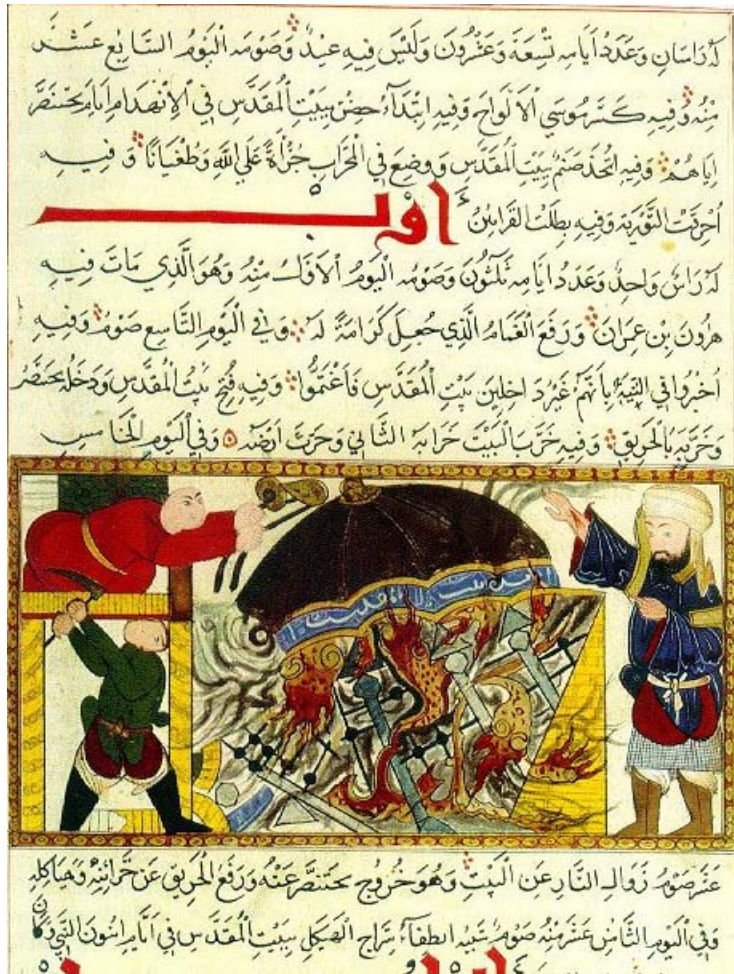 له راسان وعدد ايامه تسعة وعشرون وليس فيه عيد وصومه اليوم السابع عشر
منه وفيه كسر موسي الالواح وفيه ابتداء حصن بيت المقدس في الانهدام ايام بختنصر
اياهم وفيه اتخذ صنم ببيت المقدس ووضع في المحراب جرأة علي الله وطغيانا وفيه
احرقت التورية وفيه بطلت القرابين اوب
له راس واحد وعدد ايامه ثلثون وصومه اليوم الاول منه وهو الذي مات فيه
هرون بن عمران ورفع الغمام الذي جعل كرامة له وفي اليوم التاسع صوم وفيه
اخبروا في التيه بانهم غير داخلين بيت المقدس فاغتموا وفيه فتح بيت المقدس ودخله بختنصر
وخربه بالحريق وفيه خرب البيت خرابه الثاني وحرث ارضه وفي اليوم الخامس
عشر صوم زوال النار عن البيت وهو خروج بختنصر عنه ورفع الحريق عن خزائنه وهياكله
وفي اليوم الثامن عشر منه صوم انطفاء سراج الهيكل ببيت المقدس في ايام النبي وكان